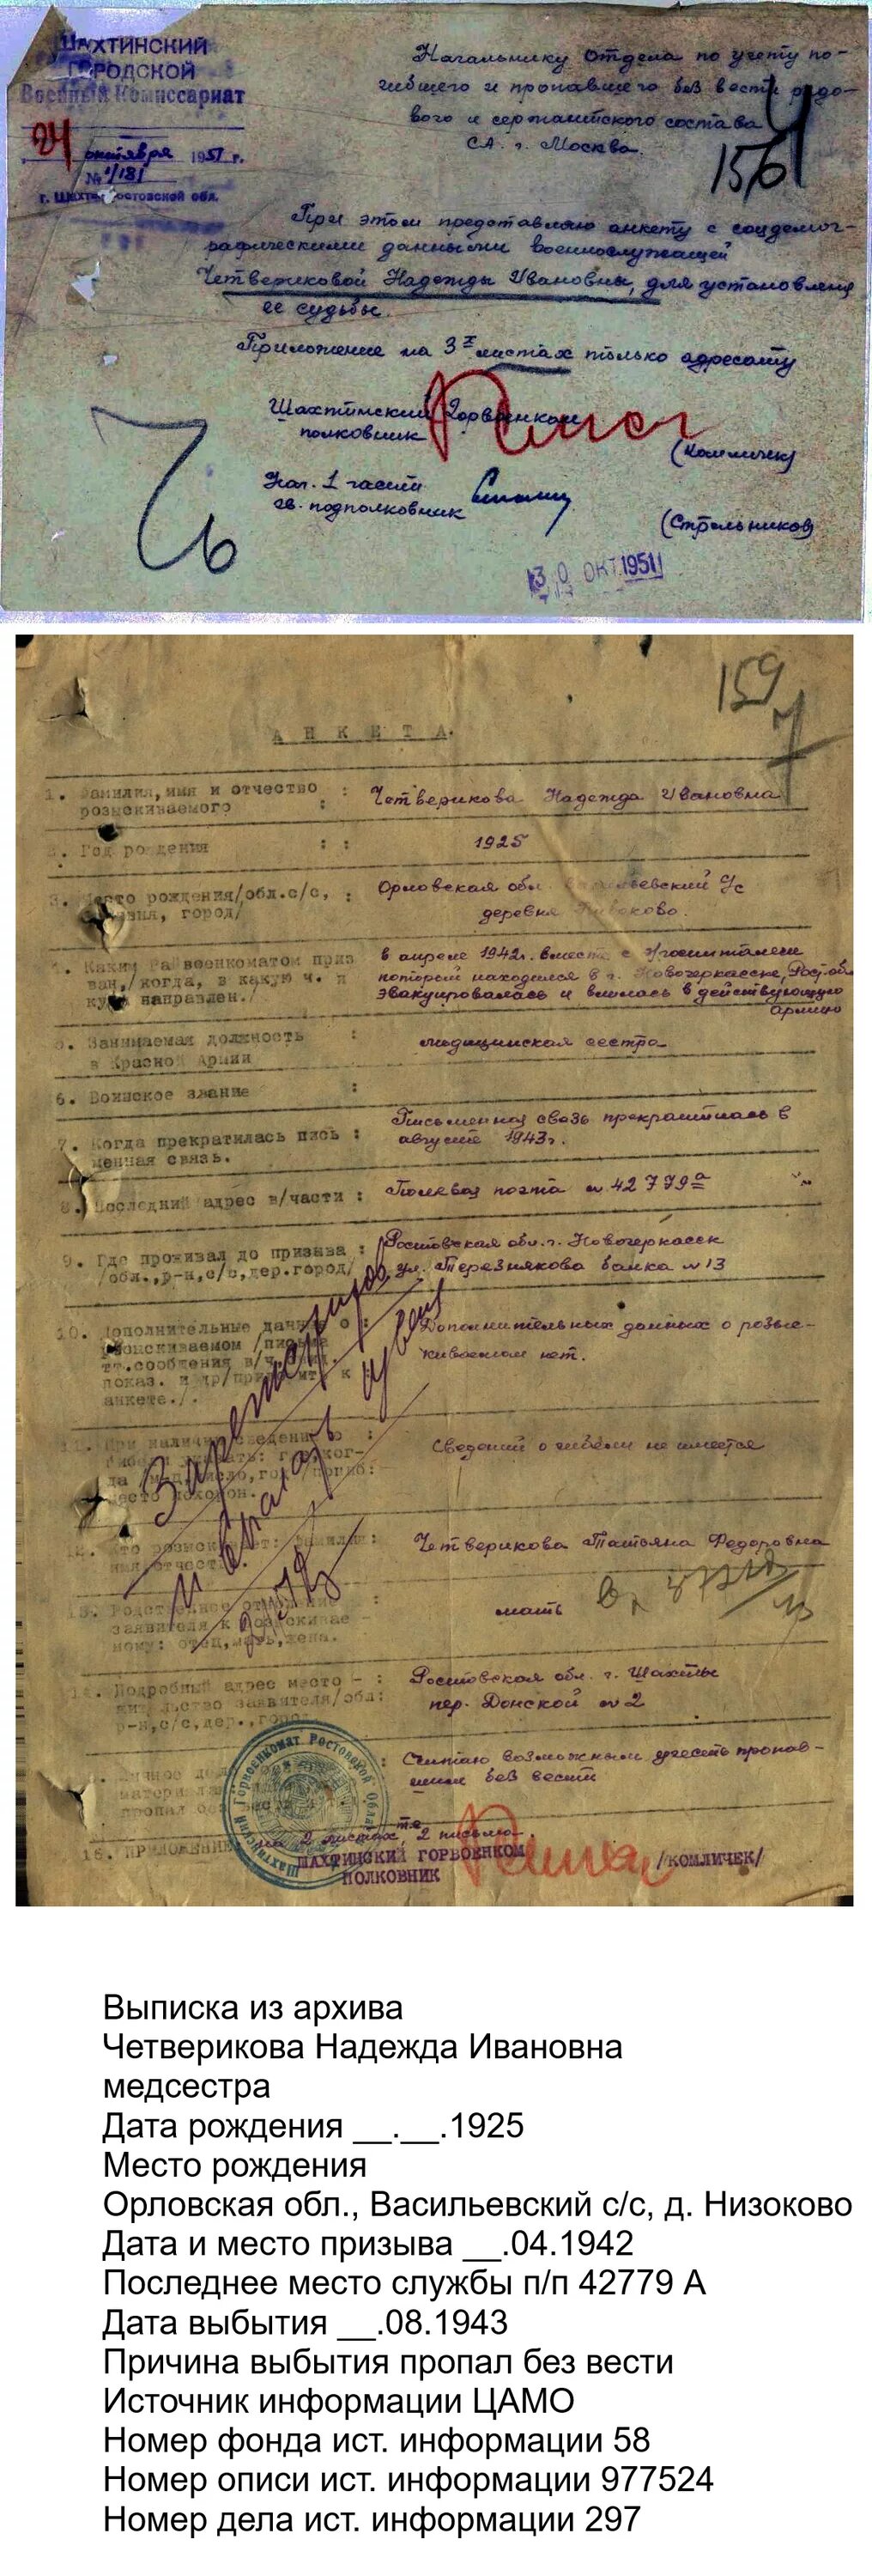 ШАХТИНСКИЙ
ГОРОДСКОЙ
Военный Комиссариат
24 октября 1951 г.
№ 1/181
г. Шахты Ростовской обл.
Начальнику Отдела по учету по-
гибшего и пропавшего без вести рядо-
вого и сержантского состава
СА г. Москва.
156
При этом представляю анкету с соцдемог-
рафическими данными военнослужащей
Четвериковой Надежды Ивановны, для установления
ее судьбы.
Приложение на 3х листах только адресату
Шахтинский Горвоенком
полковник
(Комличек)
Нач. 1 части
гв. подполковник
(Стрельников)
30 ОКТ 1951
159
АНКЕТА.
1. Фамилия, имя и отчество : Четверикова Надежда Ивановна
розыскиваемого :
2. Год рождения : : 1925
3. Место рождения/обл.с/с, : Орловская обл. Васильевский с/с
деревня, город/ деревня Низоково.
4. Каким Райвоенкоматом приз в апреле 1942г. вместе с госпиталем
ван,/когда, в какую ч. и который находился в г. Новочеркасске, Рост. обл
куда направлен./ эвакуировалась и влилась в действующую
армию
5. Занимаемая должность : медицинская сестра
в Красной Армии
6. Воинское звание :
7. Когда прекратилась пись : Письменная связь прекратилась в
менная связь. августе 1943г.
8. Последний адрес в/части : Полевая почта № 42779а
9. Где проживал до призыва : Ростовская обл. г. Новочеркасск
/обл.,р-н,с/с,дер.город/ ул. Терезнякова балка №13
10. Дополнительные данные о : Дополнительных данных о розыс-
розыскиваемом /письма киваемом нет.
тт.сообщения в/ч.
показ. и др/прилож к
анкете./.
11. При наличии сведений о : Сведений о гибели не имеется
место похорон.
12. Кто розыскивает: фамилия : Четверикова Татьяна Федоровна
имя отчество
13. Родственное отношение мать
заявителя к розыскивае -
мому: отец,мать,жена.
14. Подробный адрес место - : Ростовская обл. г. Шахты
жительство заявителя/обл: пер. Донской №2
р-н,с/с,дер.,город
: Считаю возможным учесть пропав-
шим без вести
16. ПРИЛОЖЕНИЕ: на 2 листах, 2 письма.
ШАХТИНСКИЙ ГОРВОЕНКОМ
ПОЛКОВНИК /КОМЛИЧЕК/
Выписка из архива
Четверикова Надежда Ивановна
медсестра
Дата рождения __.__.1925
Место рождения
Орловская обл., Васильевский с/с, д. Низоково
Дата и место призыва __.04.1942
Последнее место службы п/п 42779 А
Дата выбытия __.08.1943
Причина выбытия пропал без вести
Источник информации ЦАМО
Номер фонда ист. информации 58
Номер описи ист. информации 977524
Номер дела ист. информации 297